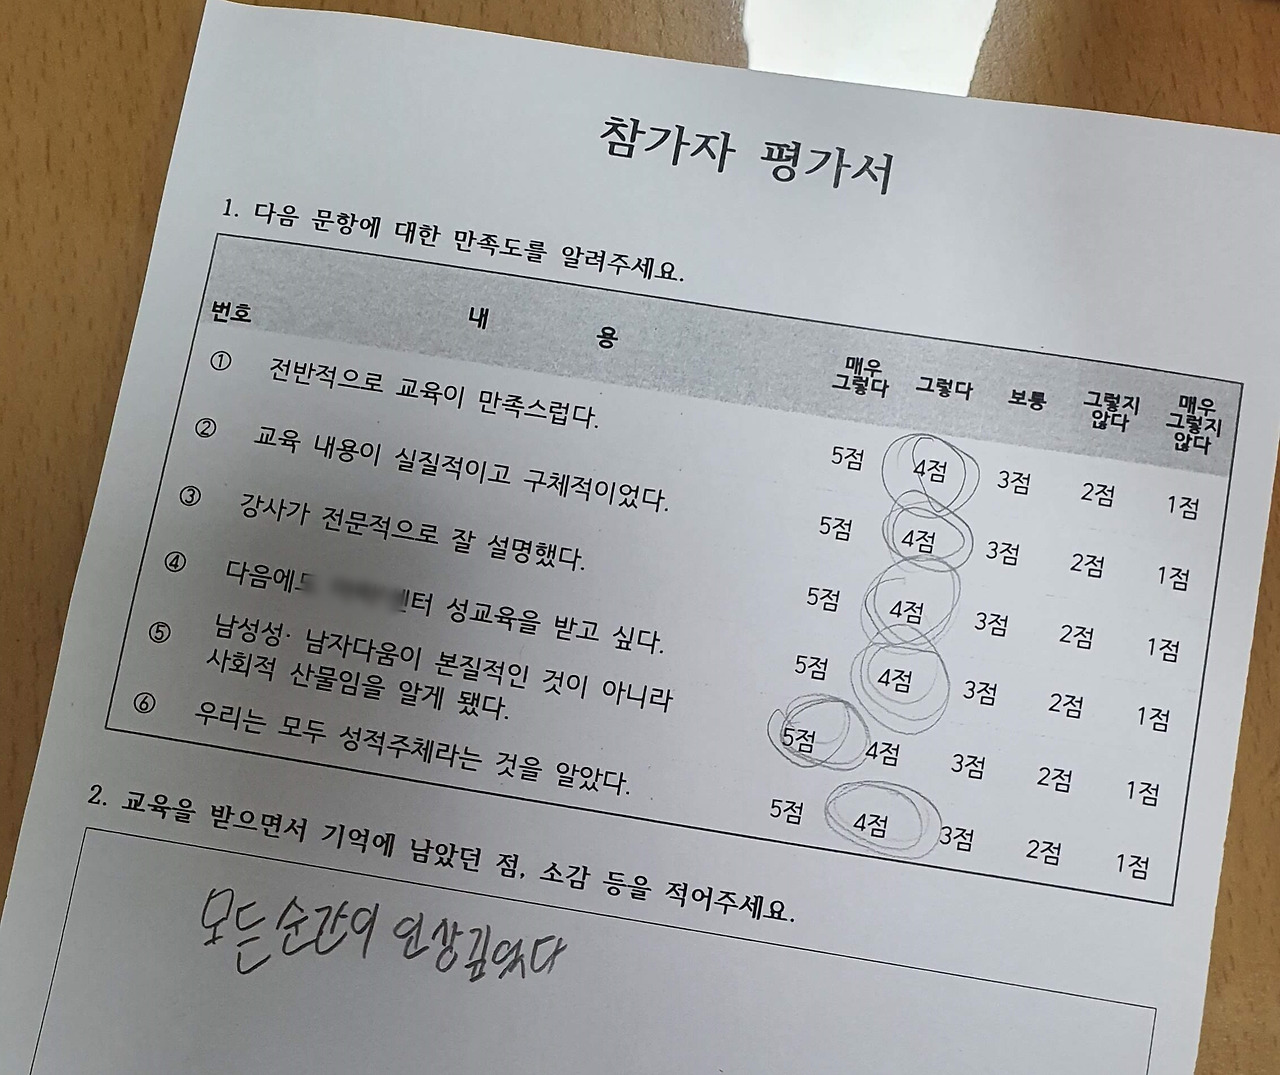 참가자 평가서
1. 다음 문항에 대한 만족도를 알려주세요.
번호 내 용 매우 그렇다 그렇다 보통 그렇지 않다 매우 그렇지 않다
① 전반적으로 교육이 만족스럽다. 5점 4점 3점 2점 1점
② 교육 내용이 실질적이고 구체적이었다. 5점 4점 3점 2점 1점
③ 강사가 전문적으로 잘 설명했다. 5점 4점 3점 2점 1점
④ 다음에도 성교육을 받고 싶다. 5점 4점 3점 2점 1점
⑤ 남성성· 남자다움이 본질적인 것이 아니라
사회적 산물임을 알게 됐다. 5점 4점 3점 2점 1점
⑥ 우리는 모두 성적주체라는 것을 알았다. 5점 4점 3점 2점 1점
2. 교육을 받으면서 기억에 남았던 점, 소감 등을 적어주세요.
모든 순간이 인상깊었다